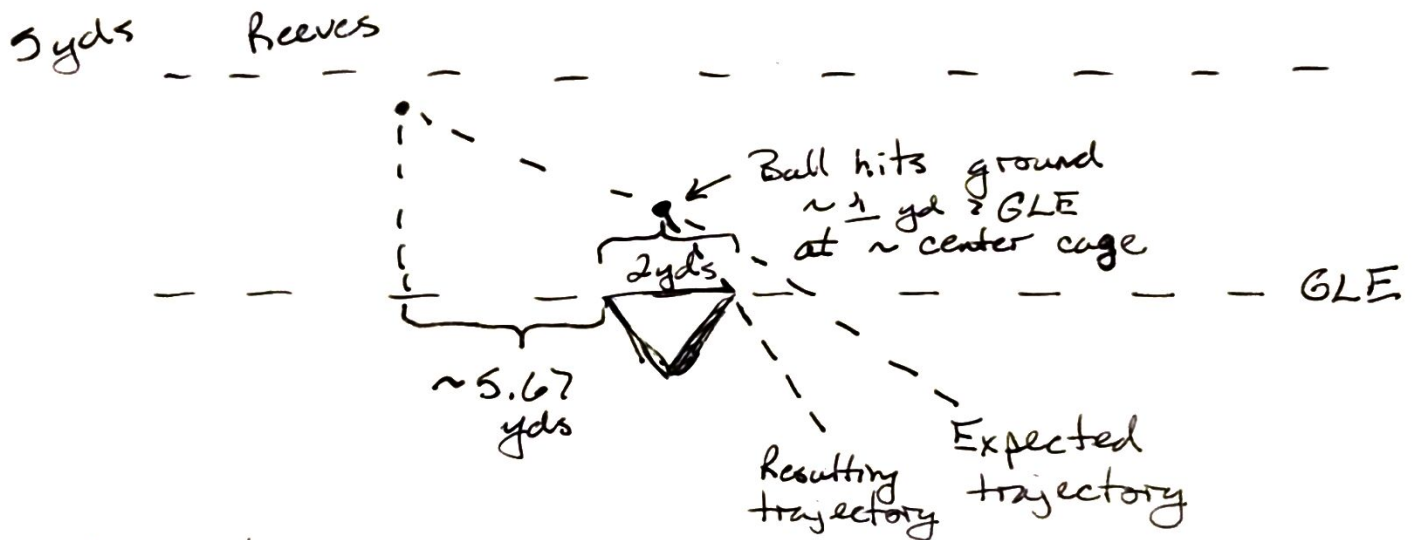 5yds Reeves
Ball hits ground
~ 1 yd GLE
at ~ center cage
2yds
GLE
~5.67
yds
Expected
trajectory
Resulting
trajectory